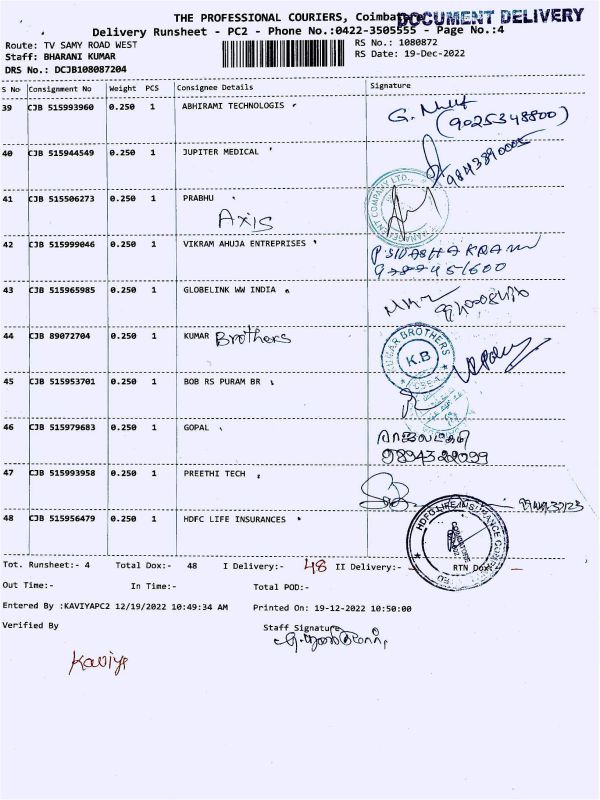 THE PROFESSIONAL COURIERS, Coimbatore
DOCUMENT DELIVERY
Delivery Runsheet - PC2 - Phone No.:0422-3505555 - Page No.:4
Route: TV SAMY ROAD WEST
RS No.: 1080872
Staff: BHARANI KUMAR
RS Date: 19-Dec-2022
DRS No.: DCJB108087204
S No Consignment No Weight PCS Consignee Details Signature
39 CJB 515993960 0.250 1 ABHIRAMI TECHNOLOGIS
(9025348800)
40 CJB 515944549 0.250 1 JUPITER MEDICAL
41 CJB 515506273 0.250 1 PRABHU
Axis
42 CJB 515999046 0.250 1 VIKRAM AHUJA ENTREPRISES
9787451600
43 CJB 515965985 0.250 1 GLOBELINK WW INDIA
44 CJB 89072704 0.250 1 KUMAR Brothers
KUMAR BROTHERS
K.B
45 CJB 515953701 0.250 1 BOB RS PURAM BR
46 CJB 515979683 0.250 1 GOPAL
47 CJB 515993958 0.250 1 PREETHI TECH
48 CJB 515956479 0.250 1 HDFC LIFE INSURANCES
HDFC LIFE INSURANCE COMPANY
Tot. Runsheet:- 4 Total Dox:- 48 I Delivery:- 48 II Delivery:- RTN Dox:-
Out Time:- In Time:- Total POD:-
Entered By :KAVIYAPC2 12/19/2022 10:49:34 AM Printed On: 19-12-2022 10:50:00
Verified By Staff Signature
Kaviya